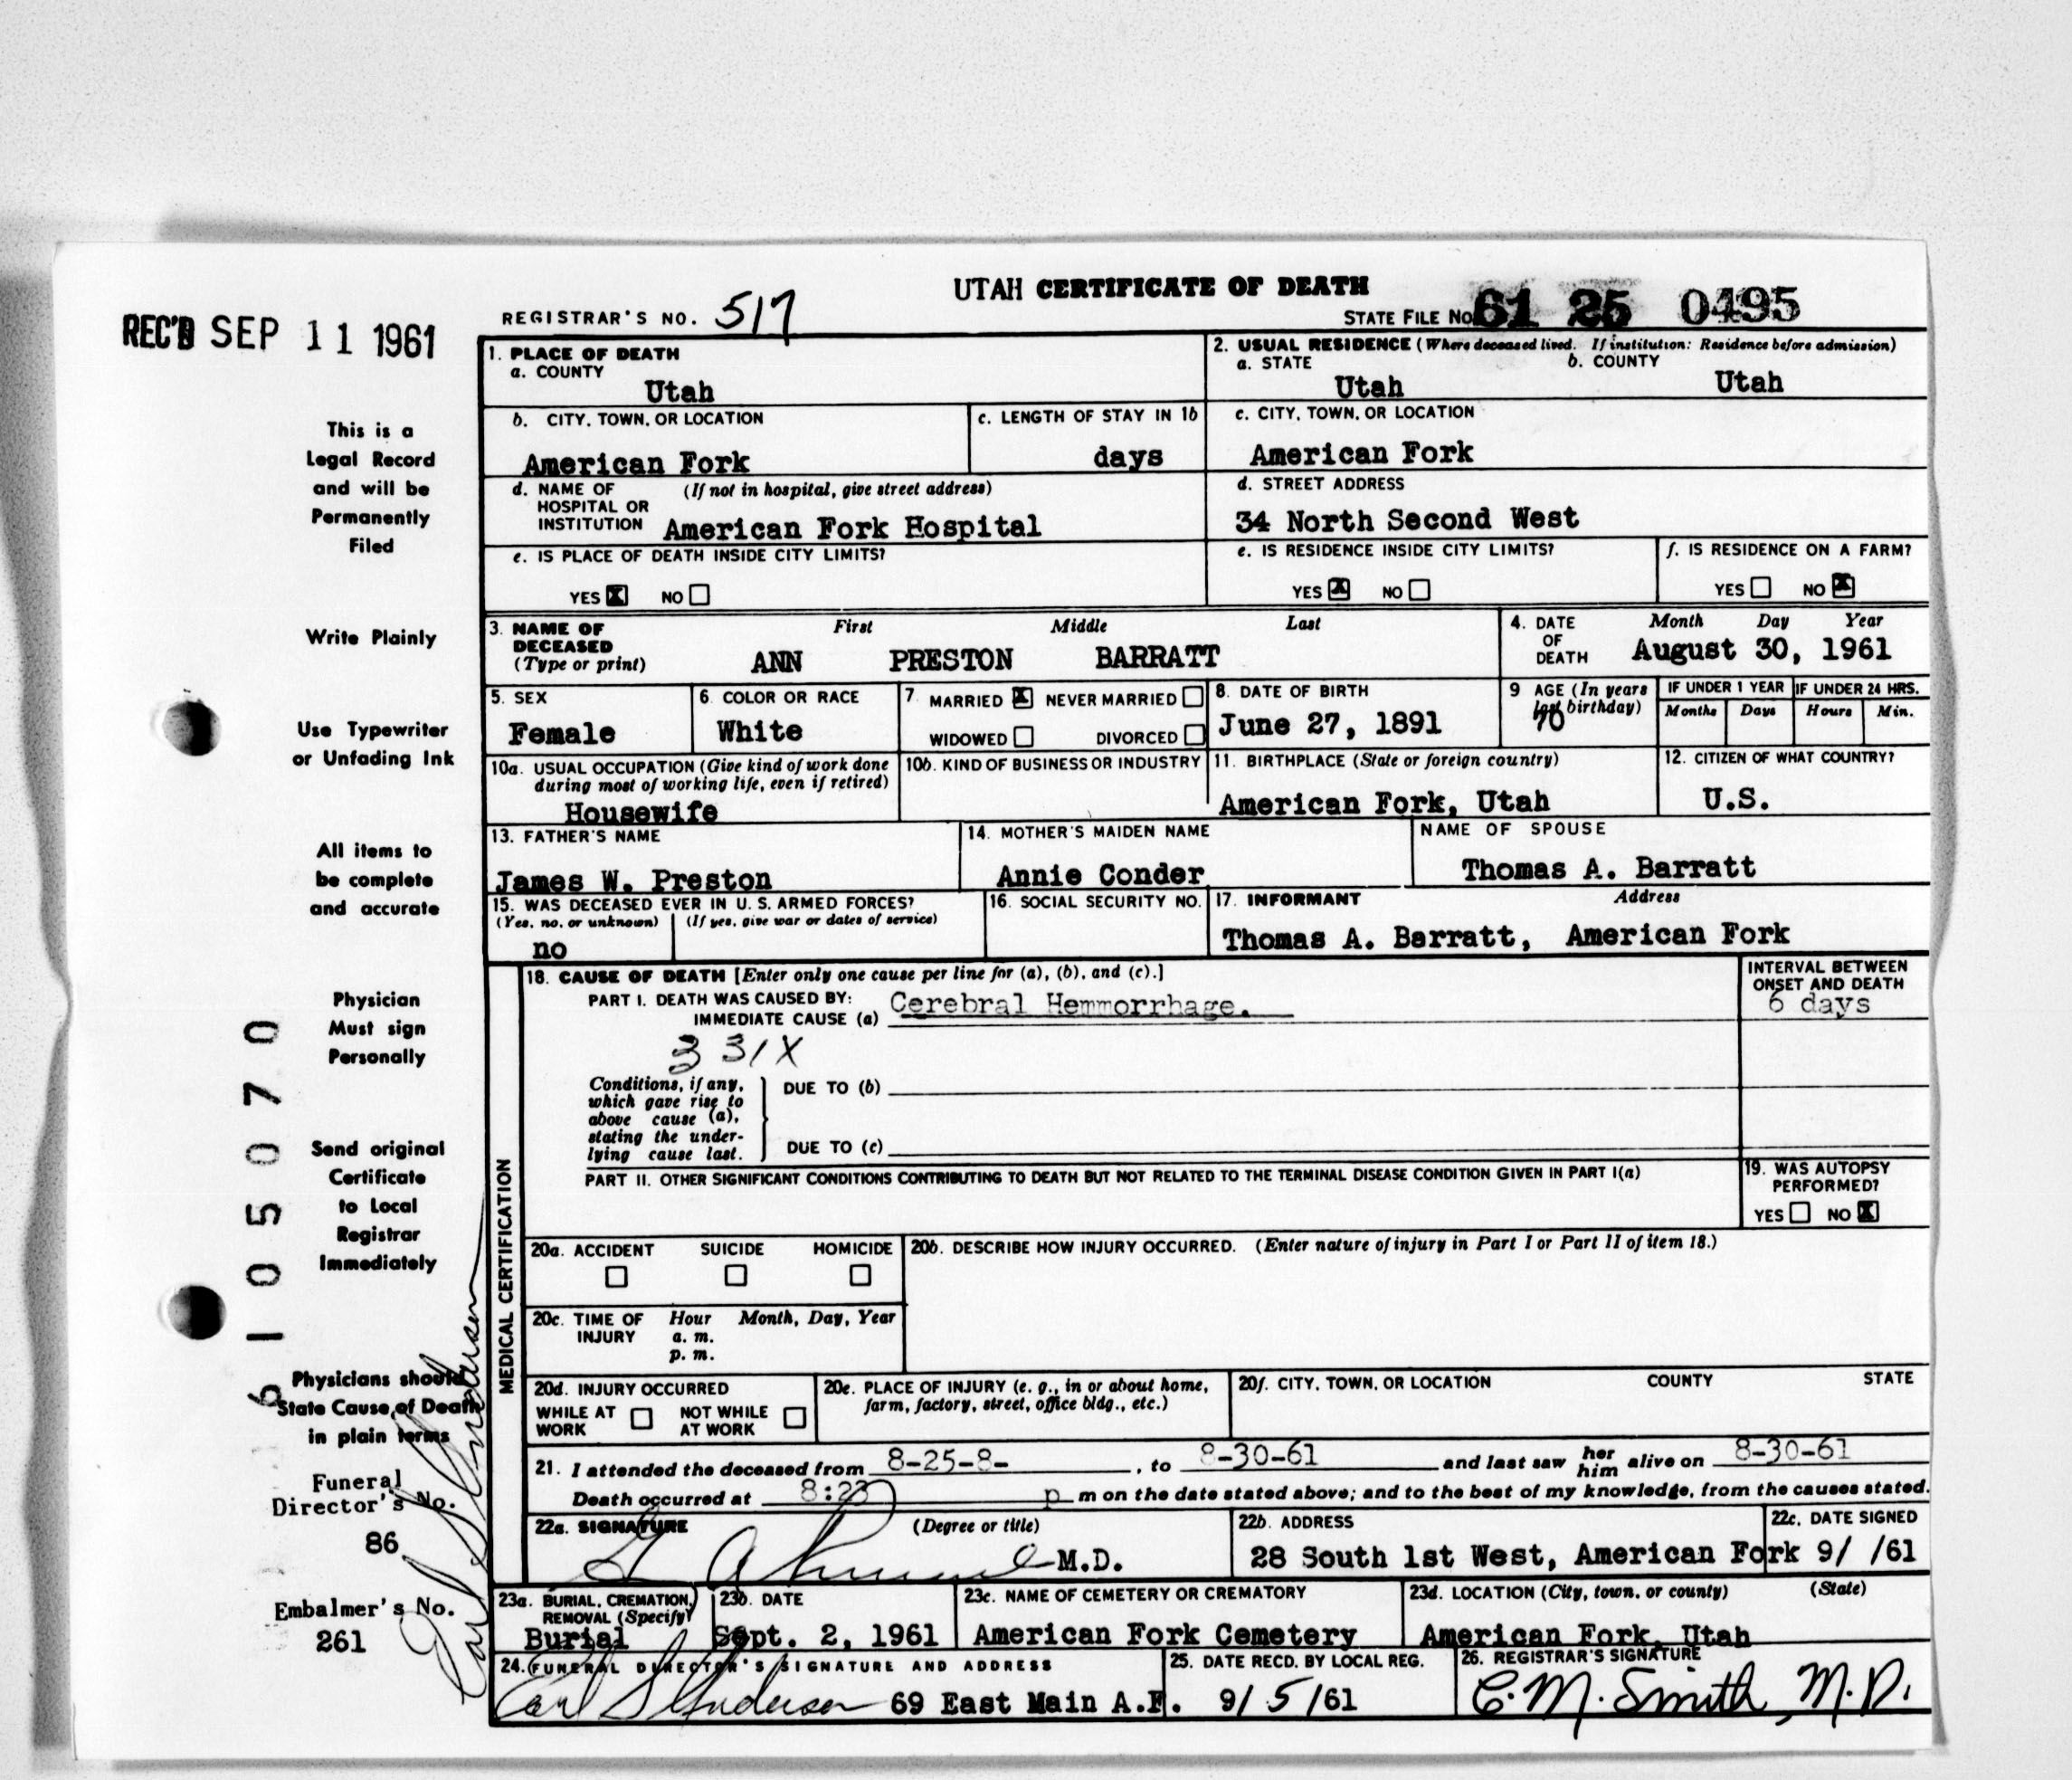 UTAH CERTIFICATE OF DEATH
REC'D SEP 11 1961
REGISTRAR'S NO. 517
STATE FILE NO. 61 25 0495
This is a
Legal Record
and will be
Permanently
Filed
Write Plainly
Use Typewriter
or Unfading Ink
All items to
be complete
and accurate
Physician
Must sign
Personally
Send original
Certificate
to Local
Registrar
Immediately
Physicians should
State Cause of Death
in plain terms
Funeral
Director's No.
86
Embalmer's No.
261
6105070
Earl S Anderson
1. PLACE OF DEATH
a. COUNTY
Utah
2. USUAL RESIDENCE (Where deceased lived. If institution: Residence before admission)
a. STATE b. COUNTY
Utah Utah
b. CITY, TOWN, OR LOCATION
American Fork
c. LENGTH OF STAY IN 1b
days
c. CITY, TOWN, OR LOCATION
American Fork
d. NAME OF (If not in hospital, give street address)
HOSPITAL OR
INSTITUTION American Fork Hospital
d. STREET ADDRESS
34 North Second West
e. IS PLACE OF DEATH INSIDE CITY LIMITS?
YES X NO
e. IS RESIDENCE INSIDE CITY LIMITS?
YES X NO
f. IS RESIDENCE ON A FARM?
YES NO X
3. NAME OF First Middle Last
DECEASED
(Type or print) ANN PRESTON BARRATT
4. DATE Month Day Year
OF
DEATH August 30, 1961
5. SEX
Female
6. COLOR OR RACE
White
7. MARRIED X NEVER MARRIED
WIDOWED DIVORCED
8. DATE OF BIRTH
June 27, 1891
9 AGE (In years
last birthday)
70
IF UNDER 1 YEAR IF UNDER 24 HRS.
Months Days Hours Min.
10a. USUAL OCCUPATION (Give kind of work done
during most of working life, even if retired)
Housewife
10b. KIND OF BUSINESS OR INDUSTRY
11. BIRTHPLACE (State or foreign country)
American Fork, Utah
12. CITIZEN OF WHAT COUNTRY?
U.S.
13. FATHER'S NAME
James W. Preston
14. MOTHER'S MAIDEN NAME
Annie Conder
NAME OF SPOUSE
Thomas A. Barratt
15. WAS DECEASED EVER IN U. S. ARMED FORCES?
(Yes, no, or unknown) (If yes, give war or dates of service)
no
16. SOCIAL SECURITY NO.
17. INFORMANT Address
Thomas A. Barratt, American Fork
MEDICAL CERTIFICATION
18. CAUSE OF DEATH [Enter only one cause per line for (a), (b), and (c).]
PART I. DEATH WAS CAUSED BY:
IMMEDIATE CAUSE (a) Cerebral Hemmorrhage.
INTERVAL BETWEEN
ONSET AND DEATH
6 days
331X
Conditions, if any,
which gave rise to
above cause (a),
stating the under-
lying cause last.
DUE TO (b)
DUE TO (c)
PART II. OTHER SIGNIFICANT CONDITIONS CONTRIBUTING TO DEATH BUT NOT RELATED TO THE TERMINAL DISEASE CONDITION GIVEN IN PART I(a)
19. WAS AUTOPSY
PERFORMED?
YES NO X
20a. ACCIDENT SUICIDE HOMICIDE
20b. DESCRIBE HOW INJURY OCCURRED. (Enter nature of injury in Part I or Part II of item 18.)
20c. TIME OF Hour Month, Day, Year
INJURY a. m.
p. m.
20d. INJURY OCCURRED
WHILE AT NOT WHILE
WORK AT WORK
20e. PLACE OF INJURY (e. g., in or about home,
farm, factory, street, office bldg., etc.)
20f. CITY, TOWN, OR LOCATION COUNTY STATE
21. I attended the deceased from 8-25-8-, to 8-30-61 and last saw her him alive on 8-30-61
Death occurred at 8:23 p m on the date stated above; and to the best of my knowledge, from the causes stated.
22a. SIGNATURE (Degree or title)
M.D.
22b. ADDRESS
28 South 1st West, American Fork
22c. DATE SIGNED
9/ /61
23a. BURIAL, CREMATION,
REMOVAL (Specify)
Burial
23b. DATE
Sept. 2, 1961
23c. NAME OF CEMETERY OR CREMATORY
American Fork Cemetery
23d. LOCATION (City, town, or county) (State)
American Fork, Utah
24. FUNERAL DIRECTOR'S SIGNATURE AND ADDRESS
Earl S Anderson 69 East Main A.F.
25. DATE RECD. BY LOCAL REG.
9/5/61
26. REGISTRAR'S SIGNATURE
C. M. Smith, M.D.